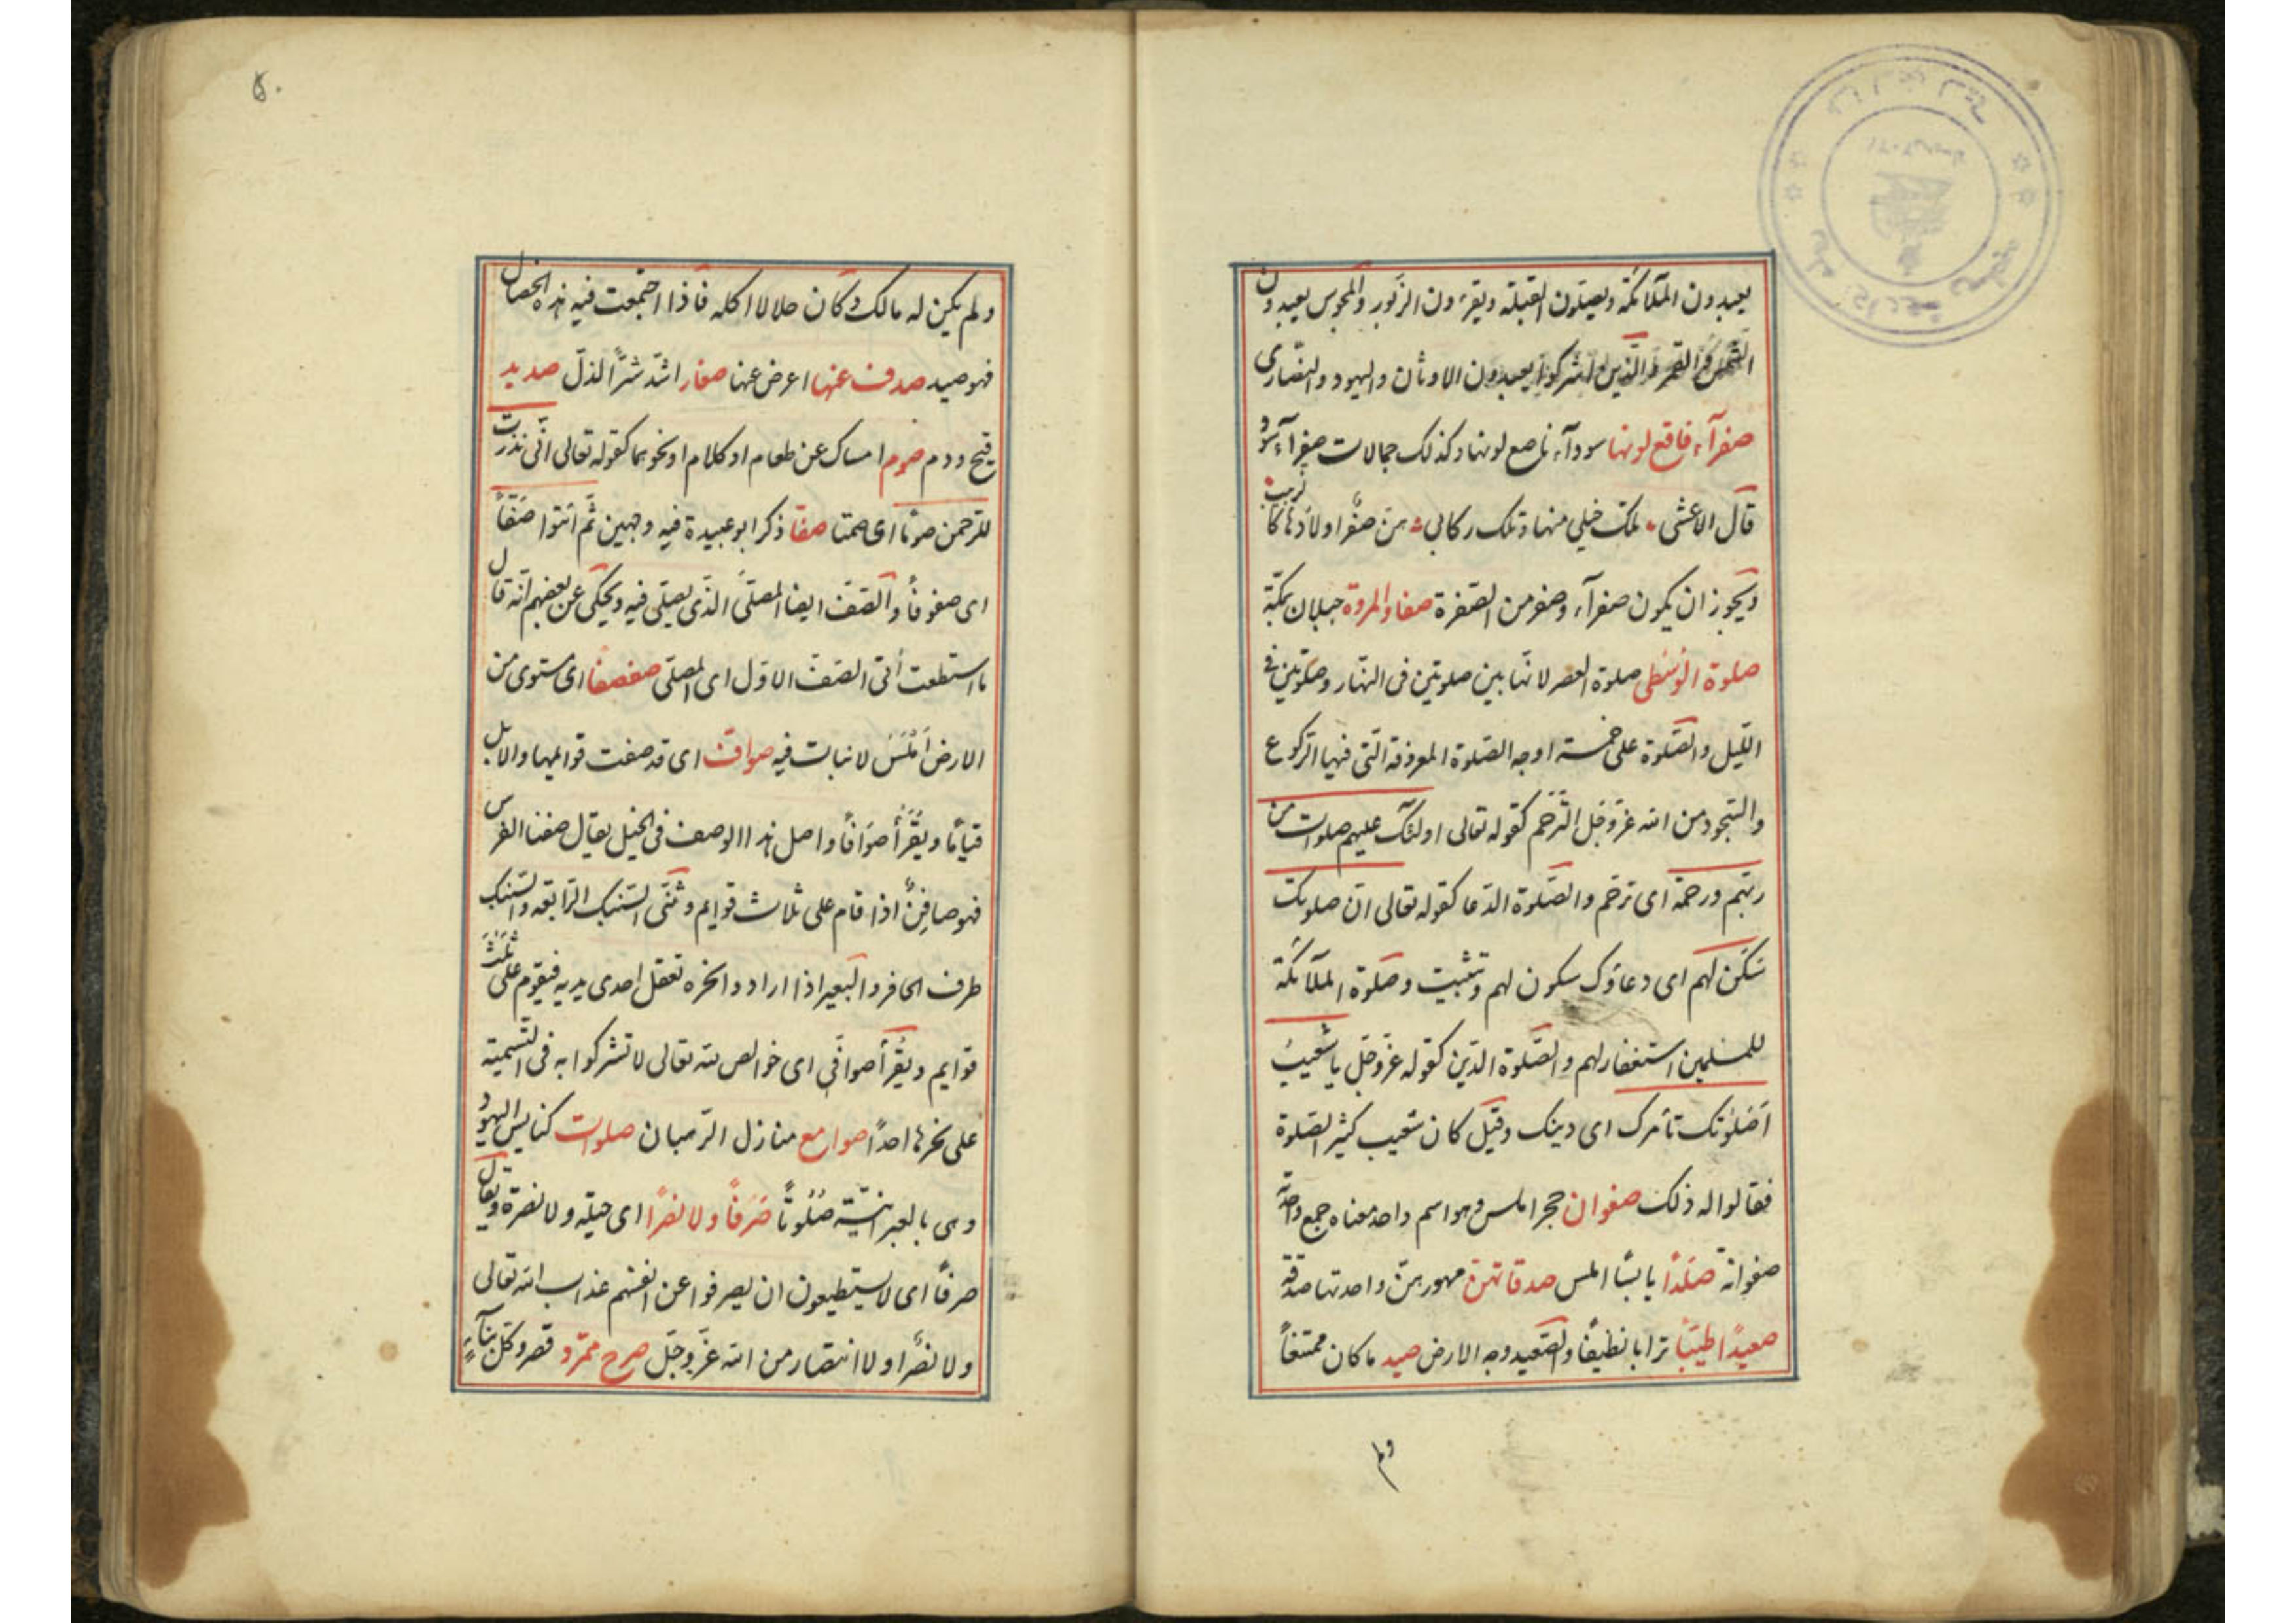 يعبدون الملآئكة ويصلون القبلة ويقرءون الزبور والمجوس يعبدون
الشمس والقمر والذين اشركوا يعبدون الاوثان واليهود والنصارى
صفرآء فاقع لونها سودآء ناصع لونها وكذلك جمالات صفر اى سود
قال الاعشى تلك خيلى منها وتلك ركابى هن صفر اولادها كالزبيب
ويجوز ان يكون صفرآء وصفر من الصفرة صفا والمروة جبلان بمكة
صلوة الوسطى صلوة العصر لانها بين صلوتين فى النهار وصلوتين فى
الليل والصلوة على خمسة اوجه الصلوة المعروفة التى فيها الركوع
والسجود من الله عز وجل الترحم كقوله تعالى اولئك عليهم صلوات من
ربهم ورحمة اى ترحم والصلوة الدعا كقوله تعالى ان صلوتك
سكن لهم اى دعاؤك سكون لهم وتثبيت وصلوة الملآئكة
للمسلمين استغفار لهم والصلوة الدين كقوله عز وجل يا شعيب
اصلوتك تأمرك اى دينك وقيل كان شعيب كثير الصلوة
فقالوا له ذلك صفوان حجر املس وهو اسم واحد معناه جمع واحدته
صفوانة صلدًا يابسًا املس صدقاتهن مهورهن واحدتها صدقة
صعيدًا طيبًا ترابا نظيفًا والصعيد وجه الارض صيد ما كان ممتنعًا
ولم
٥٠
ولم يكن له مالك وكان حلالا اكله فاذا اجتمعت فيه هذه الخصال
فهو صيد صدف عنها اعرض عنها صغار اشد الذل صديد
قيح ودم صوم امساك عن طعام او كلام او نحوهما كقوله تعالى انى نذرت
للرحمن صومًا اى صمتا صفًا ذكر ابو عبيدة فيه وجهين ثم ائتوا صفًا
اى صفوفًا والصف ايضا المصلى الذى يصلى فيه ويحكى عن بعضهم انه قال
ما استطعت أتى الصف الاول اى المصلى صفصفًا اى مستوى من
الارض املس لا نبات فيه صواف اى قد صفت قوايمها والابل
قيامًا ويقرأ صوافنًا واصل هذا الوصف فى الخيل يقال صفن الفرس
فهو صافن اذا قام على ثلاث قوايم وثنى السنبك الرابعه والسنبك
طرف الحافر والبعير اذا ارادوا نحره تعقل احدى يديه فيقوم على ثلث
قوايم ويقرأ صوافى اى خوالص لله تعالى لا تشركوا به فى التسمية
على نحرها احدًا صوامع منازل الرهبان صلوات كنايس اليهود
وهى بالعبرانية صلوتًا صرفًا ولا نصرًا اى حيلة ولا نصرة ويقال
صرفًا اى لا يستطيعون ان يصرفوا عن انفسهم عذاب الله تعالى
ولا نصرًا ولا انتصار من الله عز وجل صرح ممرد قصر وكل بنآء